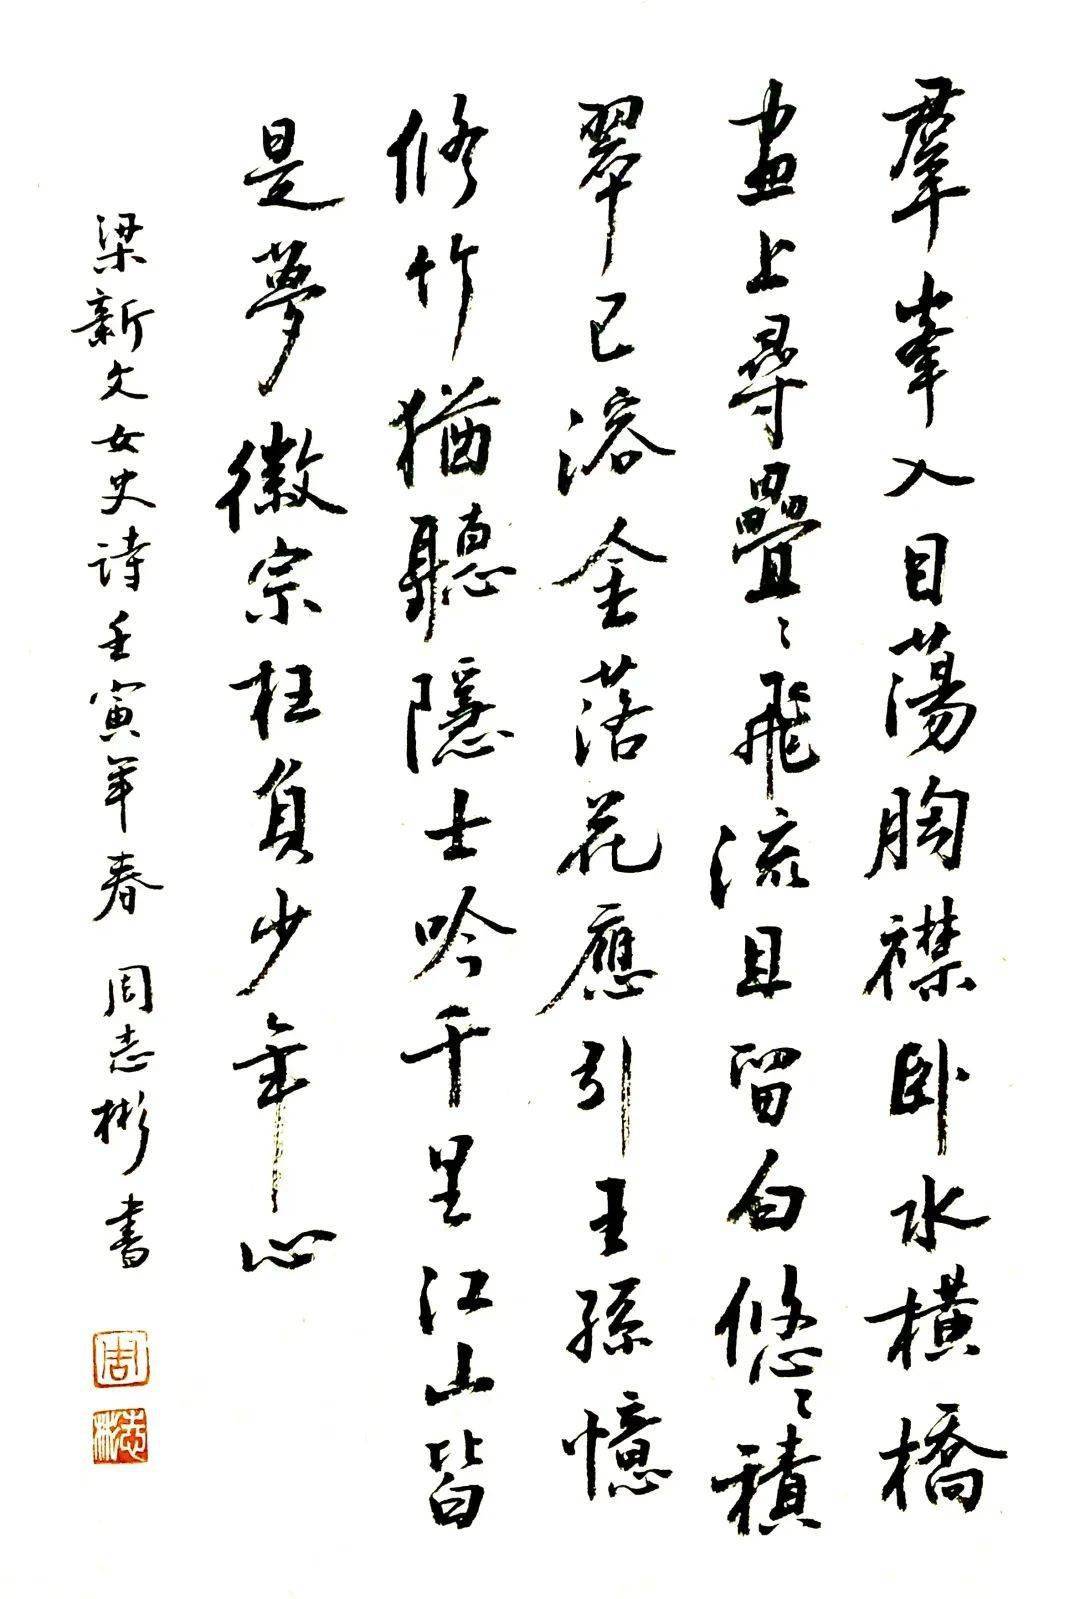 羣峯入目蕩胸襟卧水橫橋
畫上尋疊〻飛流且留白悠〻積
翠已溶金落花應引王孫憶
修竹猶聽隱士吟千里江山皆
是夢徽宗枉負少年心
梁新文女史詩壬寅年春 周志彬書
周
志彬